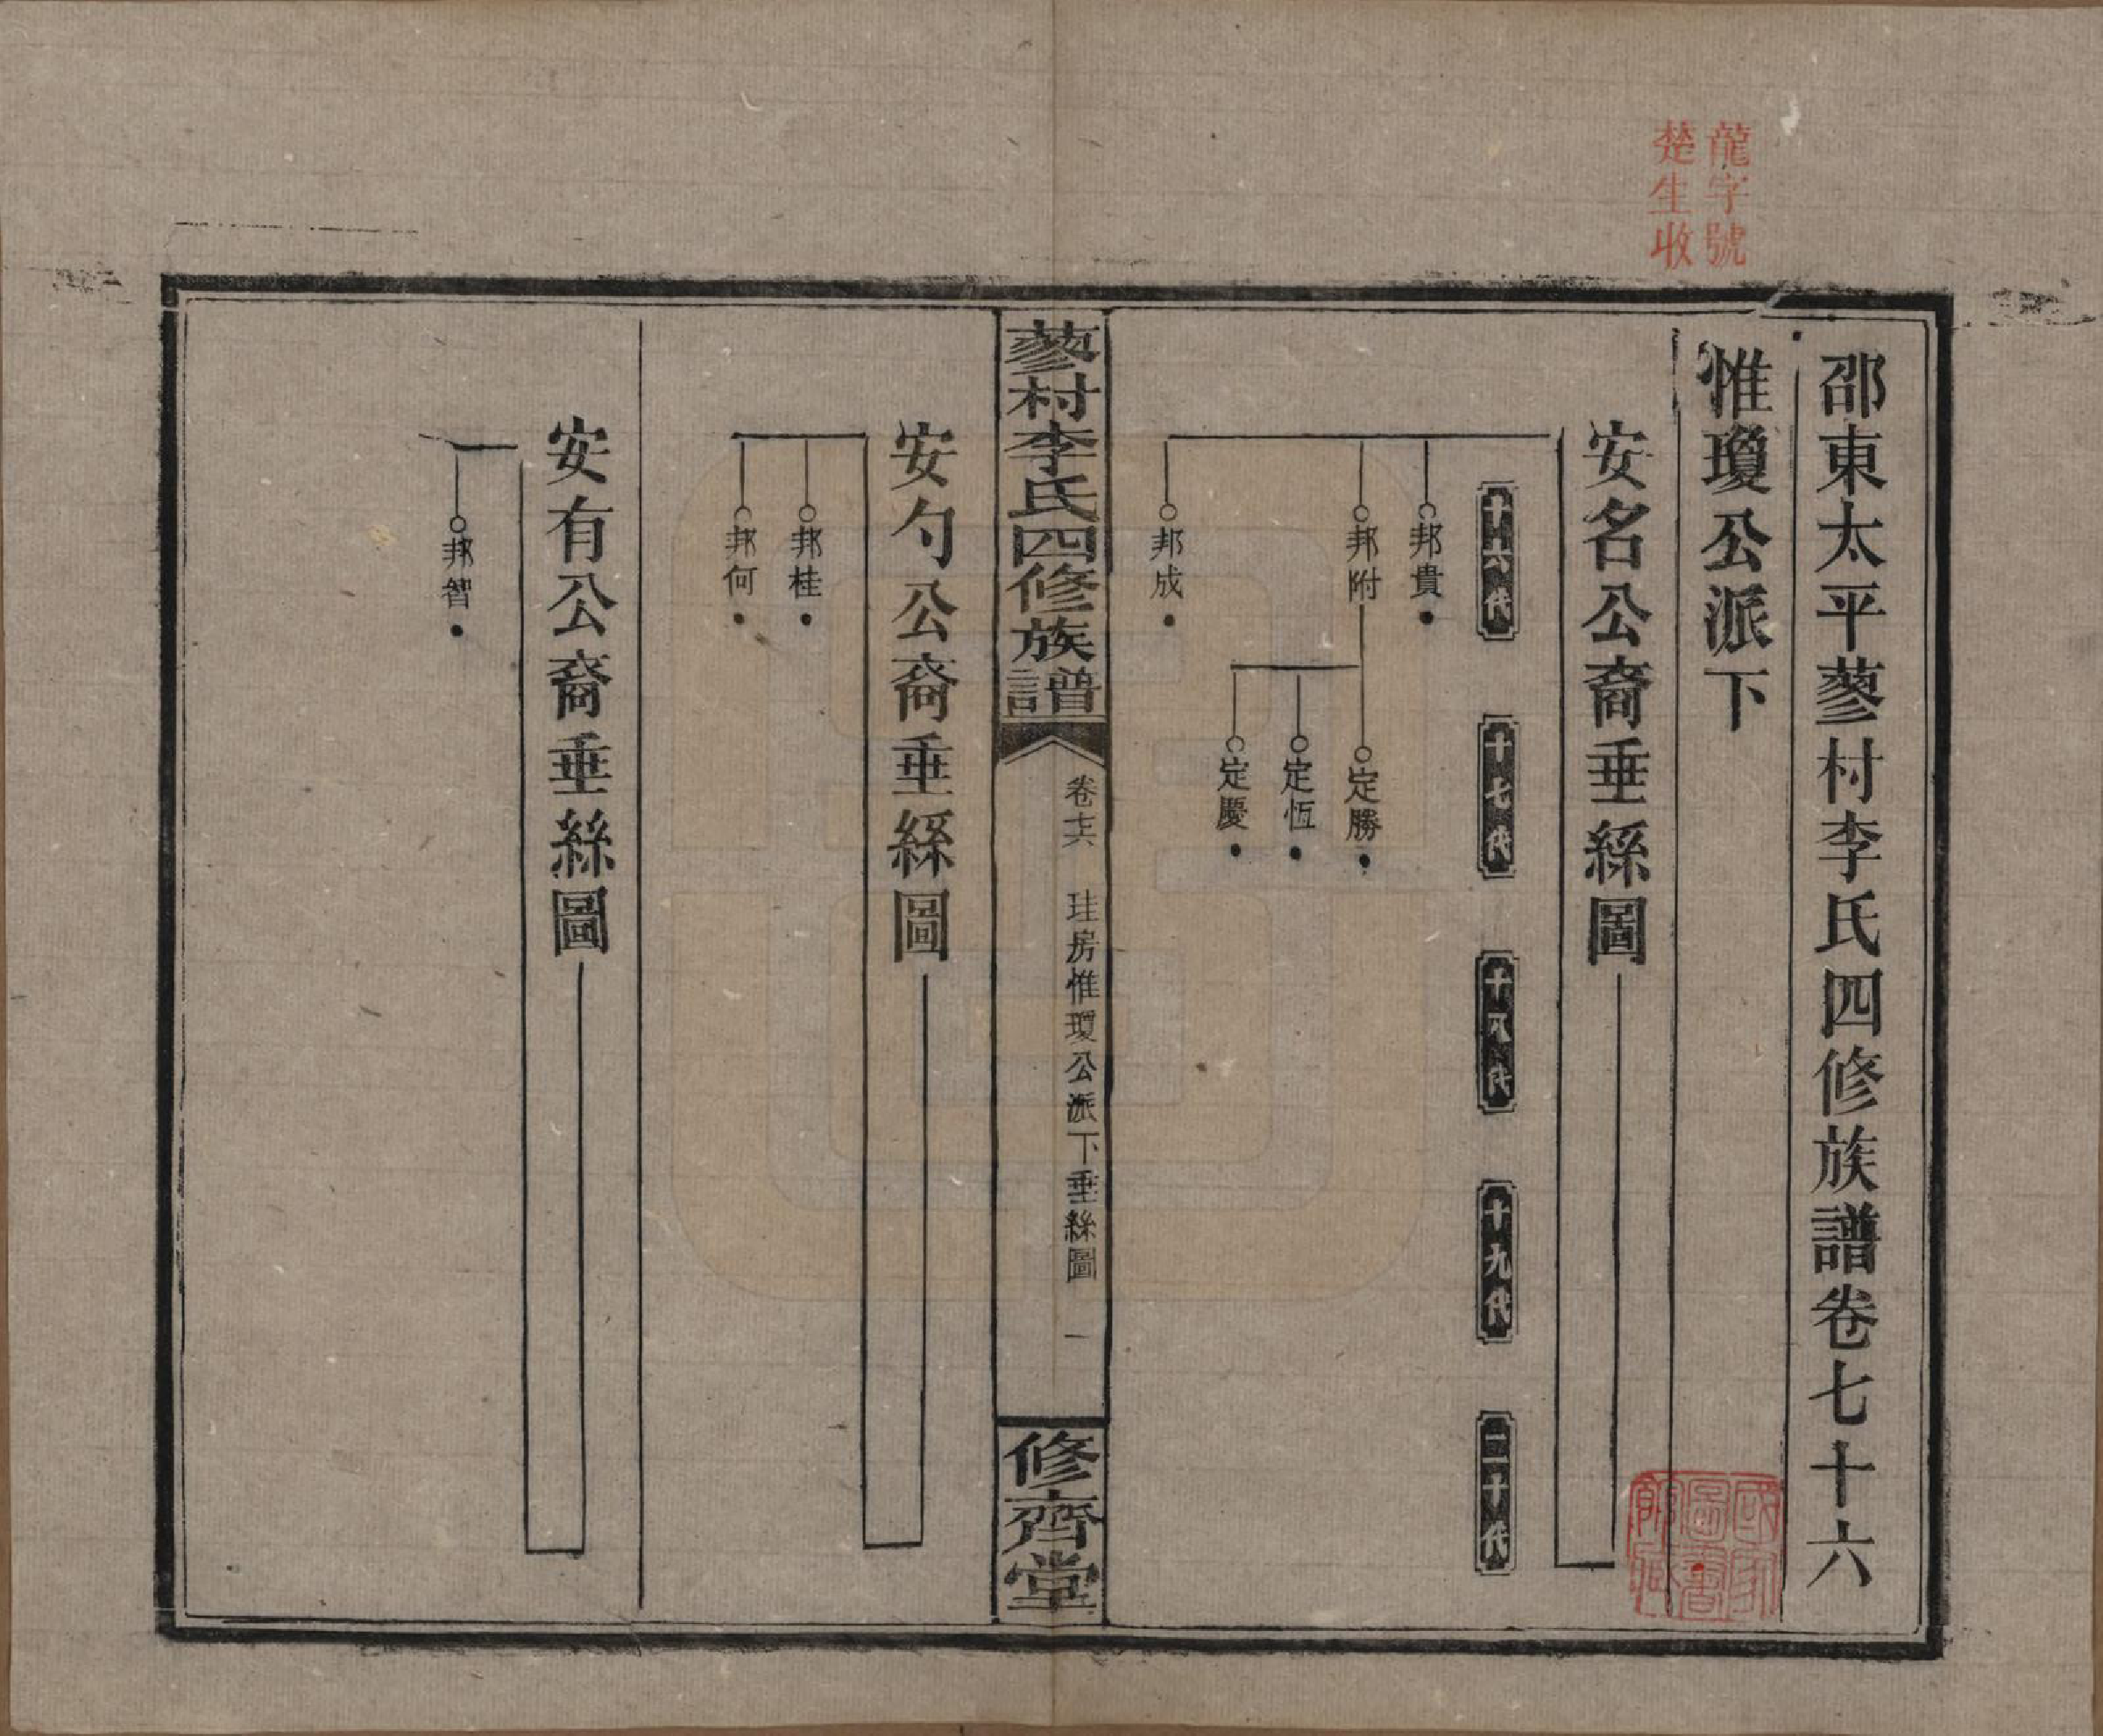 龍字號
楚生收
邵東太平蓼村李氏四修族譜卷七十六
惟瓊公派下
安名公裔垂絲圖
十六代
十七代
十八代
十九代
二十代
邦貴
邦附
定勝
定恆
定慶
邦成
蓼村李氏四修族譜
卷七十六
珪房惟瓊公派下垂絲圖
一
修齊堂
安勺公裔垂絲圖
邦桂
邦何
安有公裔垂絲圖
邦智
國家
圖書
館藏